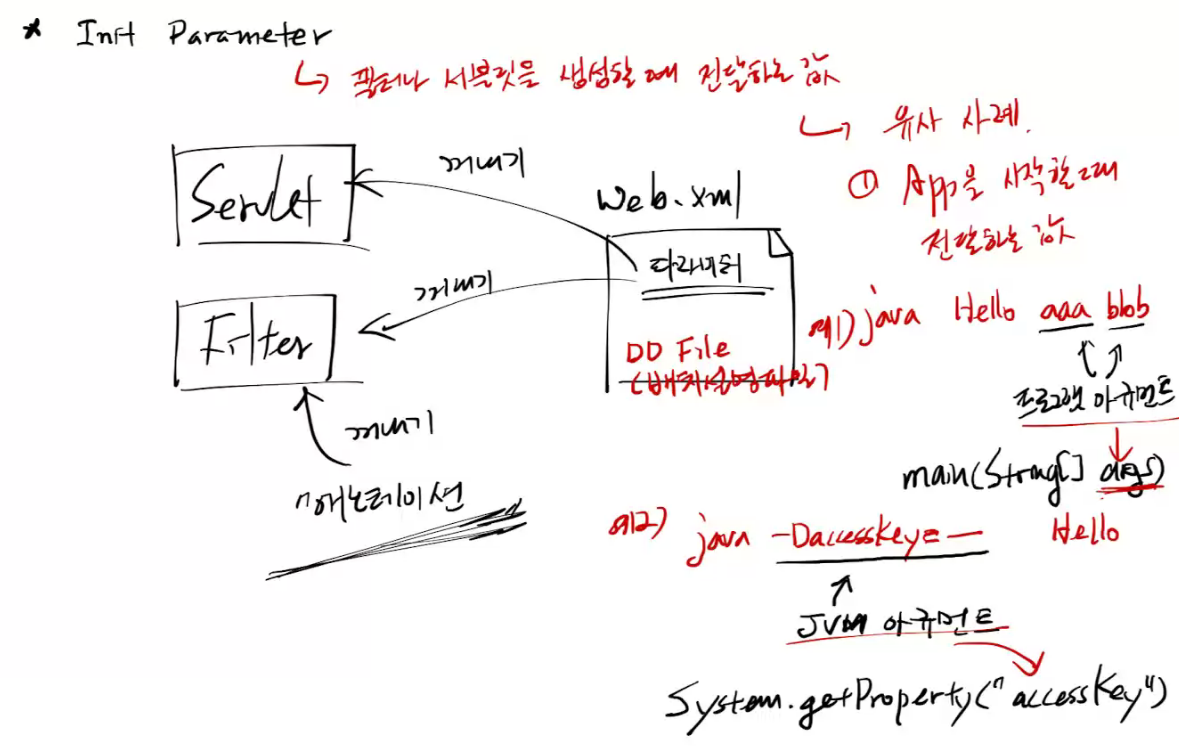 * Init Parameter
↳ 필터나 서블릿을 생성할 때 전달하는 값
↳ 유사 사례.
① App을 시작할 때
전달하는 값
Servlet
꺼내기
Web.xml
파라미터
꺼내기
Filter
DD File
(배치설명파일)
꺼내기
"애노테이션
예1) java Hello aaa bbb
프로그램 아규먼트
main(String[] args)
예2) java -DaccessKey=— Hello
JVM 아규먼트
System.getProperty("accessKey")